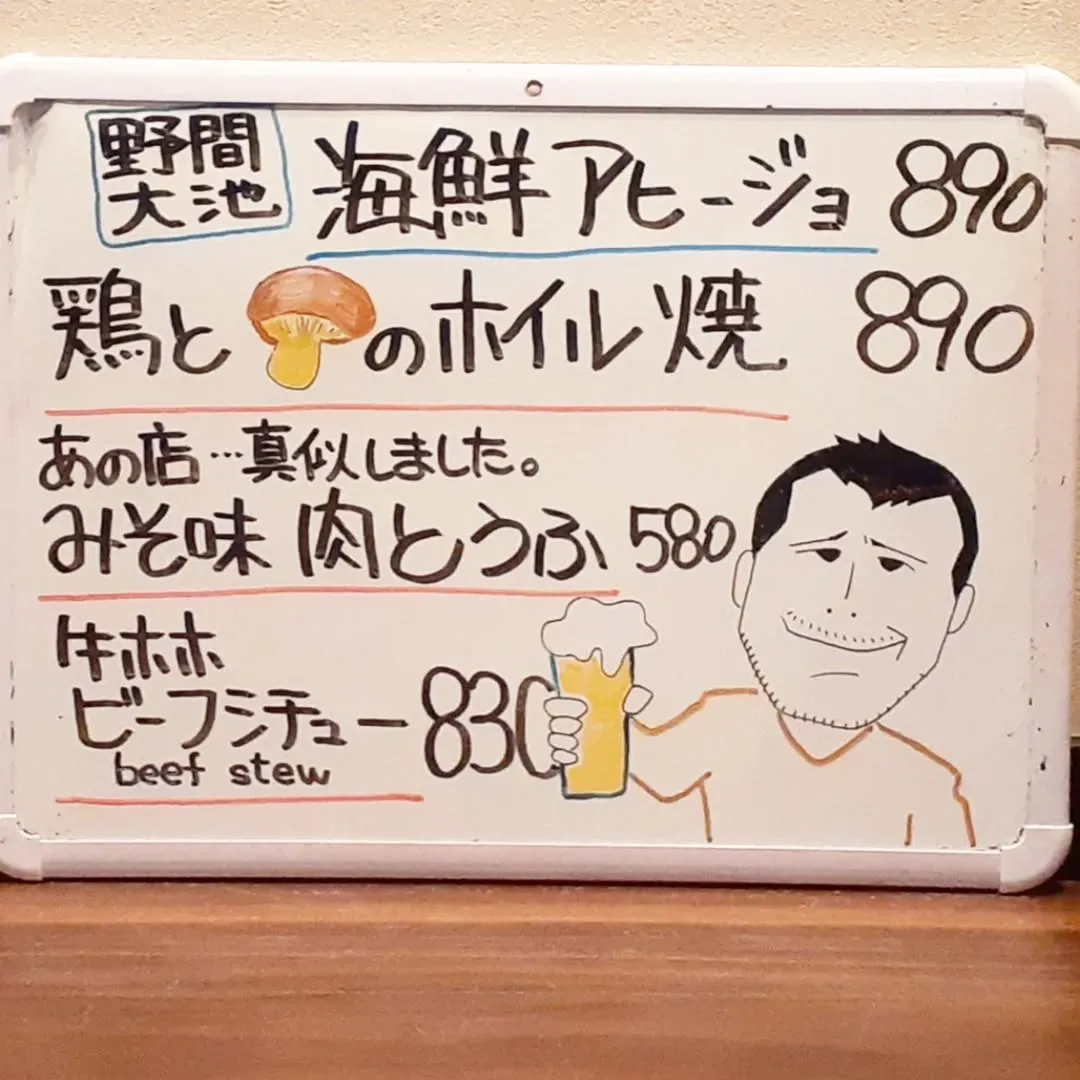 野間
大池
海鮮アヒージョ 890
鶏と のホイル焼 890
あの店…真似しました。
みそ味 肉とうふ 580
牛ホホ
ビーフシチュー 830
beef stew